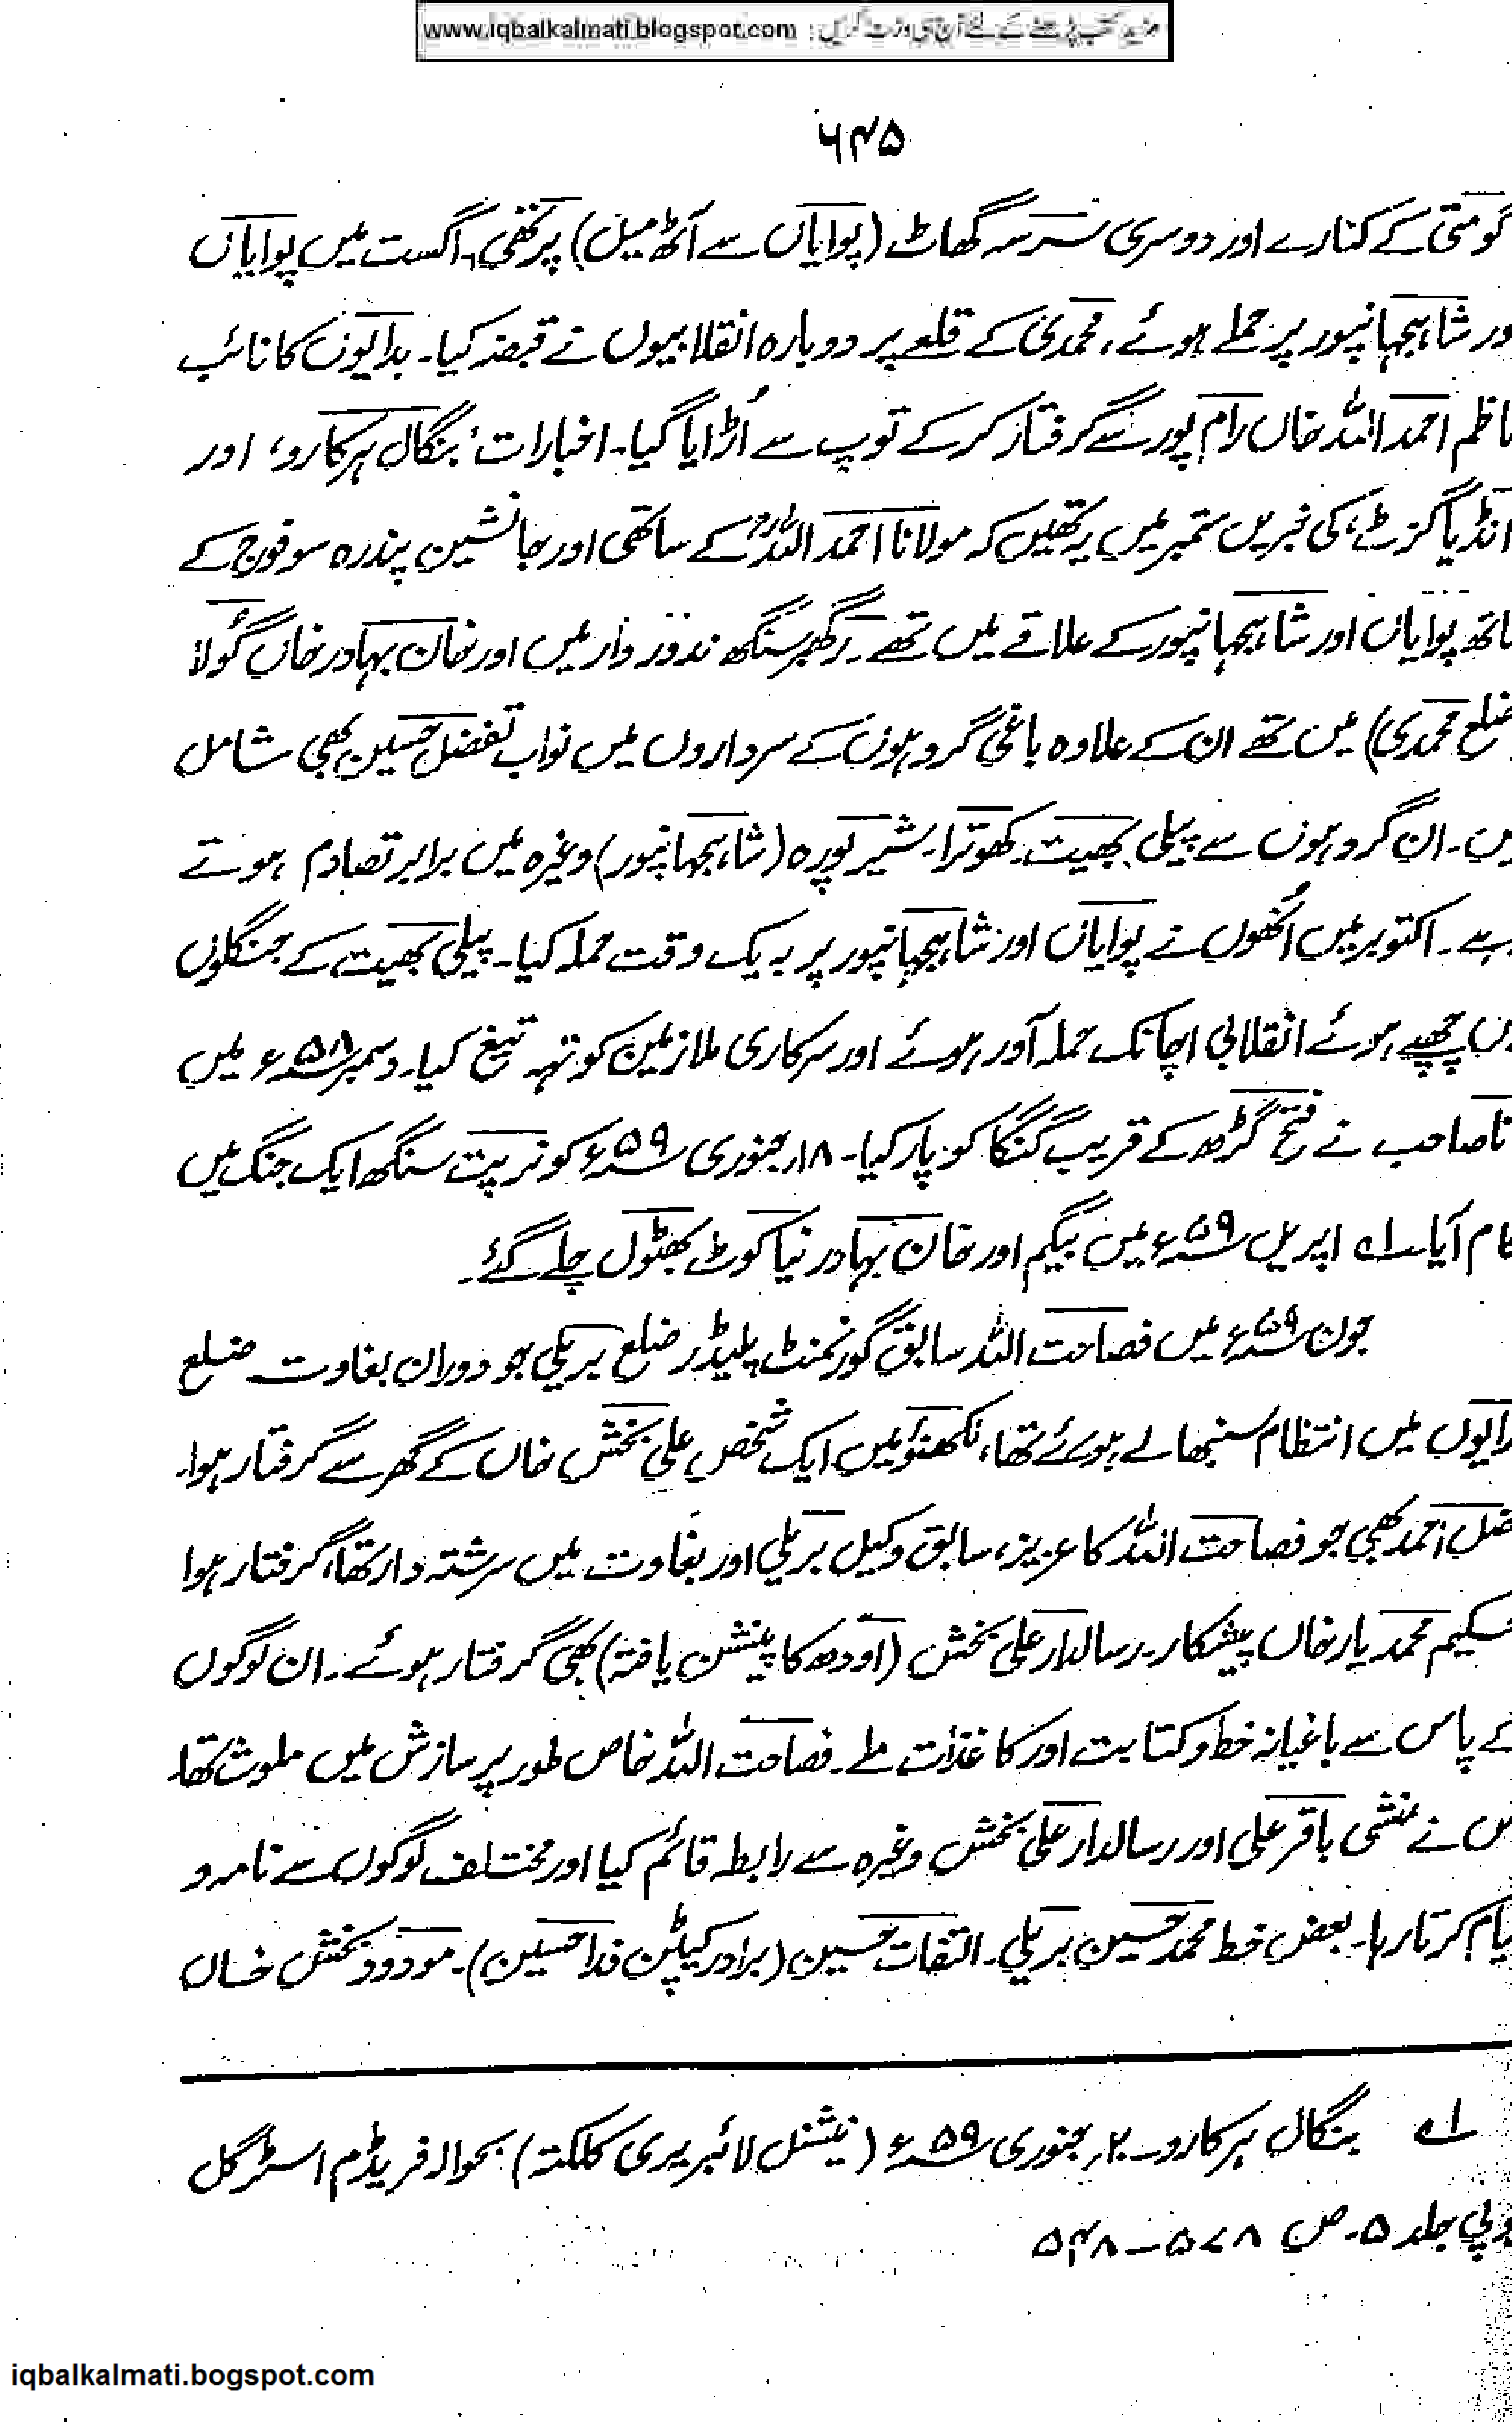 مزید کتب پڑھنے کے لئے آج ہی وزٹ کریں : www.iqbalkalmati.blogspot.com
۶۴۵
گومتی کے کنارے اور دوسری سرسہ گھاٹ (پوایاں سے آٹھ میل) پر تھی۔ اگست میں پوایاں
ور شاہجہانپور پر حملے ہوئے، محمدی کے قلعے پر دوبارہ انقلابیوں نے قبضہ کیا۔ بدایوں کا نائب
اظم احمد اللہ خاں رام پور سے گرفتار کر کے توپ سے اُڑایا گیا۔ اخبارات ’بنگال ہرکارو‘ اور
انڈیا گزٹ‘ کی خبریں ستمبر میں یہ تھیں کہ مولانا احمد اللہؒ کے ساتھی اور جانشین پندرہ سو فوج کے
اتھ پوایاں اور شاہجہانپور کے علاقے میں تھے۔ رگھبر سنگھ میں اور خان بہادر خاں گولا
ضلع محمدی) میں تھے ان کے علاوہ باغی گروہوں کے سرداروں میں نواب تفضل حسین بھی شامل
یں۔ ان گروہوں سے پیلی بھیت۔ کھوترا۔ شیر پورہ (شاہجہانپور) وغیرہ میں برابر تصادم ہوتے
ہے۔ اکتوبر میں اُنھوں نے پوایاں اور شاہجہانپور پر بہ یک وقت حملہ کیا۔ پیلی بھیت کے جنگلوں
ں چھپے ہوئے انقلابی اچانک حملہ آور ہوئے اور سرکاری ملازمین کو تہہ تیغ کیا۔ دسمبر ۵۸ء میں
ناصاحب نے فتح گڑھ کے قریب گنگا کو پار کیا۔ ۱۸ر جنوری ۵۹ء کو نرپت سنگھ ایک جنگ میں
کام آیا۔ لہ اپریل ۵۹ء میں بیگم اور خان بہادر نیا کوٹ بھٹول چلے گئے۔
جون ۵۹ء میں فصاحت اللہ سابق گورنمنٹ پلیڈر ضلع بریلی جو دوران بغاوت ضلع
دایوں میں انتظام سنبھالے ہوئے تھا، لکھنؤ میں ایک شخص علی بخش خاں کے گھر سے گرفتار ہوا۔
ضل احمد بھی جو فصاحت اللہ کا عزیز، سابق وکیل بریلی اور بغاوت میں سرشتہ دار تھا، گرفتار ہوا
حکیم محمد یار خاں پیشکار۔ رسالدار علی بخش (اودھ کا پینشن یافتہ) بھی گرفتار ہوئے۔ ان لوگوں
کے پاس سے باغیانہ خط و کتابت اور کاغذات ملے۔ فصاحت اللہ خاص طور پر سازش میں ملوث تھا۔
س نے منشی باقر علی اور رسالدار علی بخش وغیرہ سے رابطہ قائم کیا اور مختلف لوگوں سے نامہ و
یام کرتا رہا۔ بعض خط محمد حسین بریلی۔ التفات حسین (برادر کیپٹن فدا حسین)۔ مودود بخش خاں
لہ بنگال ہرکارو۔ ۲ر جنوری ۵۹ء (نیشنل لائبریری کلکتہ) بحوالہ فریڈم اسٹرگل
یوپی جلد ۵۔ ص ۵۷۸ – ۵۴۸
iqbalkalmati.bogspot.com